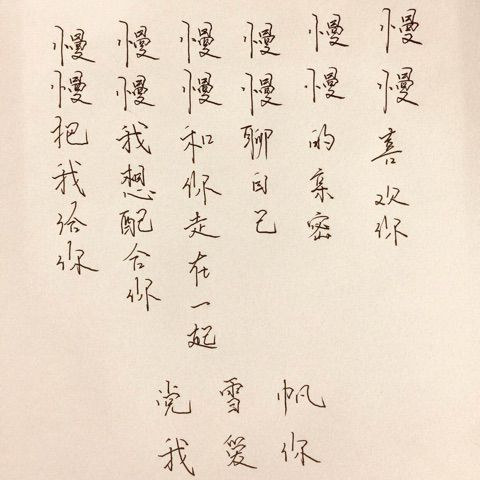 慢慢喜欢你
慢慢的亲密
慢慢聊自己
慢慢和你走在一起
慢慢我想配合你
慢慢把我给你
党雪帆
我爱你